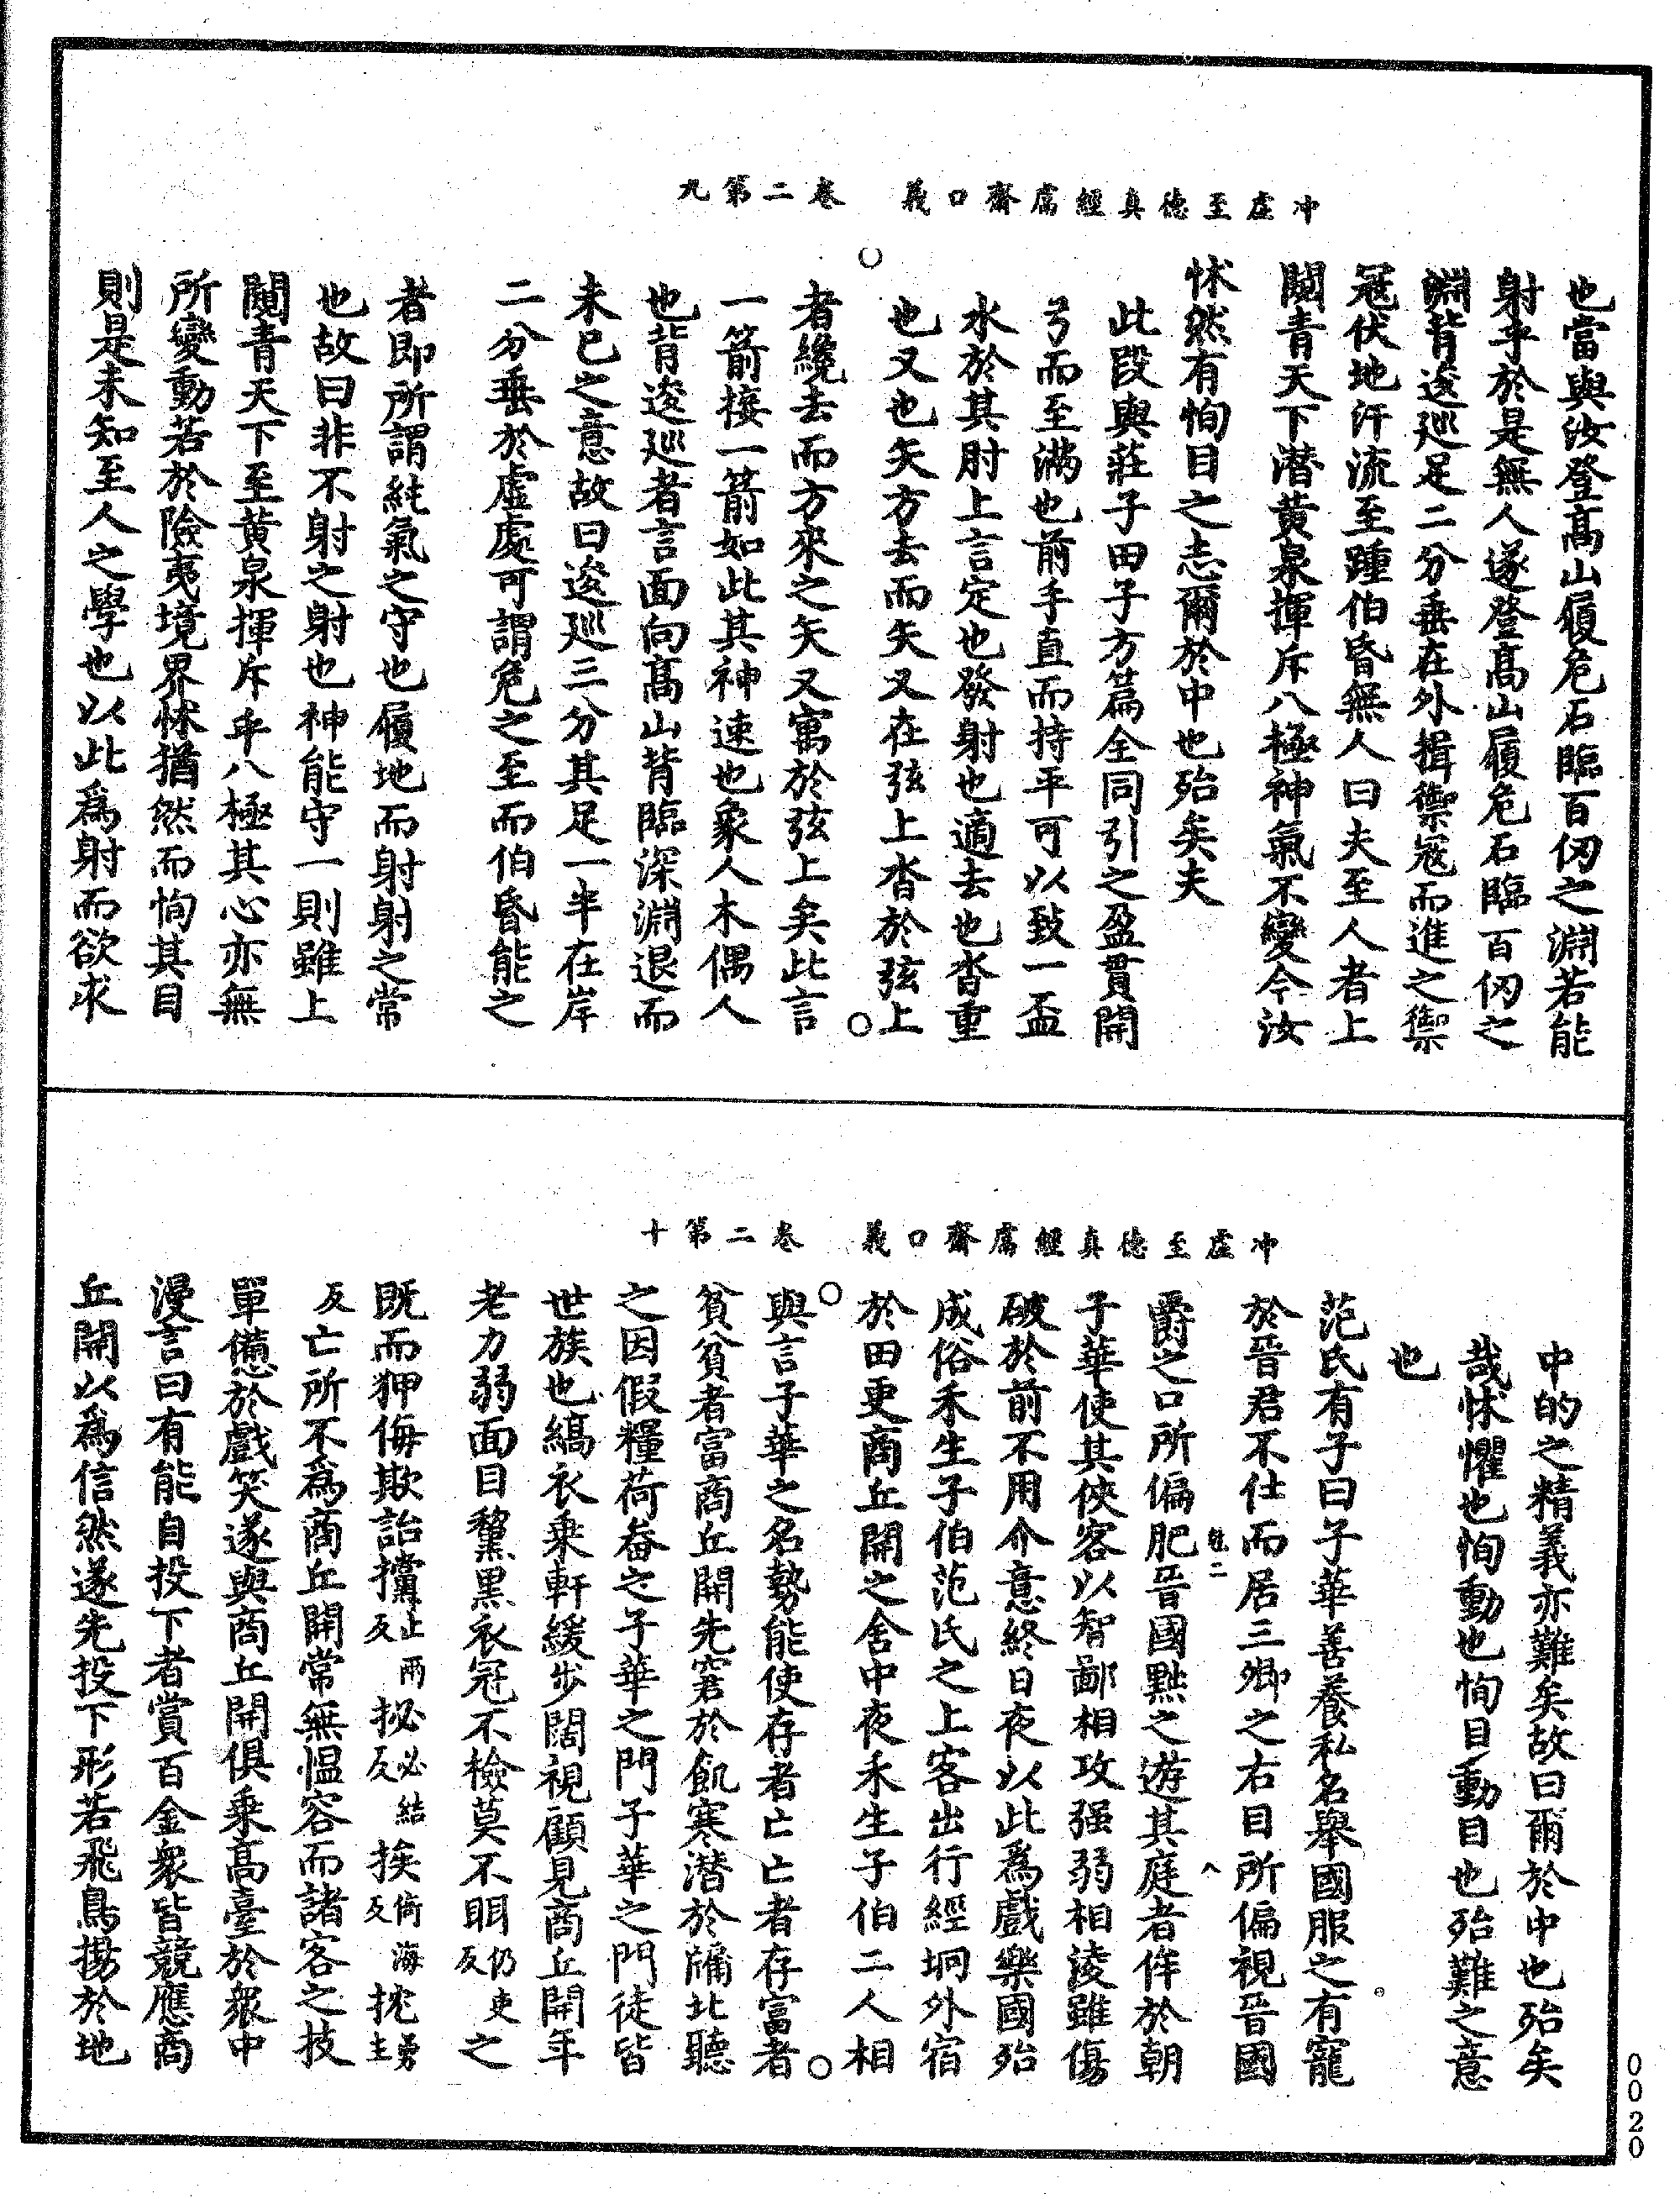 冲虛至德真經鬳齋口義　卷二第九
也當與汝登髙山履危石臨百仞之淵若能
射乎於是無人遂登髙山履危石臨百仞之
淵背逡巡足二分垂在外揖禦冦而進之禦
冦伏地汗流至踵伯昏無人曰夫至人者上
闚青天下潛黄泉揮斥八極神氣不變今汝
怵然有恂目之志爾於中也殆矣夫
此段與莊子田子方篇全同引之盈貫開
弓而至滿也前手直而持平可以致一盃
水於其肘上言定也發射也適去也沓重
也又也矢方去而矢又在弦上沓於弦上
者纔去而方來之矢又寓於弦上矣此言
一箭接一箭如此其神速也象人木偶人
也背逡巡者言面向髙山背臨深淵退而
未已之意故曰逡巡三分其足一半在岸
二分垂於虛處可謂危之至而伯昏能之
者即所謂純氣之守也履地而射射之常
也故曰非不射之射也神能守一則雖上
闚青天下至黄泉揮斥乎八極其心亦無
所變動若於險夷境界怵猶然而恂其目
則是未知至人之學也以此爲射而欲求
冲虛至德真經鬳齋口義　卷二第十
中的之精義亦難矣故曰爾於中也殆矣
哉怵懼也恂動也恂目動目也殆難之意
也
范氏有子曰子華善養私名舉國服之有寵
於晉君不仕而居三卿之右目所偏視晉國
爵之口所偏肥晉國黜之遊其庭者侔於朝
子華使其俠客以智鄙相攻强弱相淩雖傷
破於前不用介意終日夜以此爲戲樂國殆
成俗禾生子伯范氏之上客出行經坰外宿
於田更商丘開之舍中夜禾生子伯二人相
與言子華之名勢能使存者亡亡者存富者
貧貧者富商丘開先窘於飢寒潛於牖北聽
之因假糧荷畚之子華之門子華之門徒皆
世族也縞衣乘軒緩步闊視顧見商丘開年
老力弱面目黧黒衣冠不檢莫不眲仍吏反之
既而狎侮欺詒攩上兩反㧙必結反挨倚海反㧣勇主
反亡所不爲商丘開常無愠容而諸客之技
單憊於戲笑遂與商丘開俱乘髙臺於衆中
漫言曰有能自投下者賞百金衆皆競應商
丘開以爲信然遂先投下形若飛鳥揚於地
0020